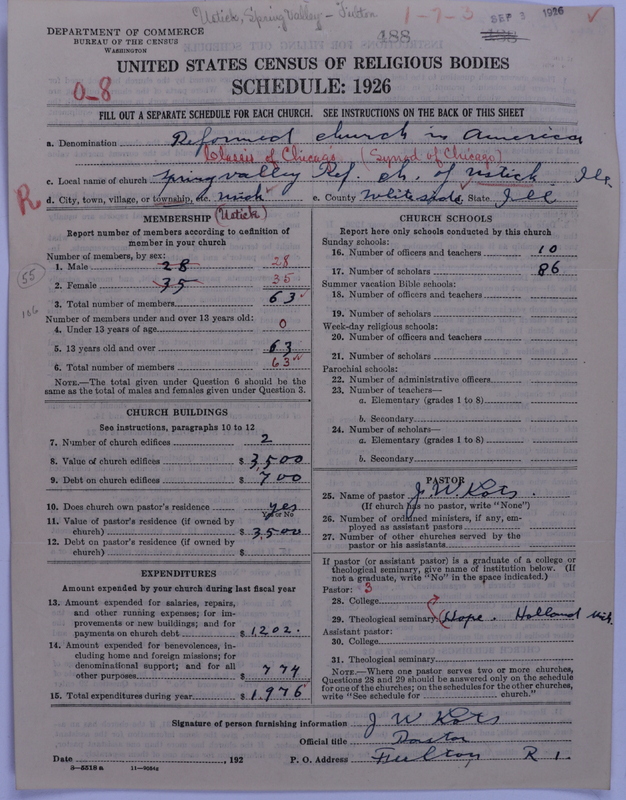 Ustick, Spring Valley - Fulton
1-7-3
SEP 3 1926
188
DEPARTMENT OF COMMERCE
BUREAU OF THE CENSUS
WASHINGTON
UNITED STATES CENSUS OF RELIGIOUS BODIES
SCHEDULE: 1926
0-8
FILL OUT A SEPARATE SCHEDULE FOR EACH CHURCH. SEE INSTRUCTIONS ON THE BACK OF THIS SHEET
a. Denomination Reformed church in America
Classis of Chicago (Synod of Chicago)
c. Local name of church Spring valley Ref. ch. of Ustick Ill.
R
d. City, town, village, or township, etc. e. County Whiteside, State Ill
(Ustick)
MEMBERSHIP
Report number of members according to definition of
member in your church
Number of members, by sex:
1. Male 28 28
2. Female 35 35
3. Total number of members 63
55
186
Number of members under and over 13 years old:
4. Under 13 years of age 0
5. 13 years old and over 63
6. Total number of members 63
NOTE.—The total given under Question 6 should be the
same as the total of males and females given under Question 3.
CHURCH BUILDINGS
See instructions, paragraphs 10 to 12
7. Number of church edifices 2
8. Value of church edifices $ 3,500
9. Debt on church edifices $ 700
10. Does church own pastor's residence yes
Yes or No
11. Value of pastor's residence (if owned by
church) $ 3,500
12. Debt on pastor's residence (if owned by
church) $
EXPENDITURES
Amount expended by your church during last fiscal year
13. Amount expended for salaries, repairs,
and other running expenses; for im-
provements or new buildings; and for
payments on church debt $ 1,202.
14. Amount expended for benevolences, in-
cluding home and foreign missions; for
denominational support; and for all
other purposes $ 774
15. Total expenditures during year $ 1,976
CHURCH SCHOOLS
Report here only schools conducted by this church
Sunday schools:
16. Number of officers and teachers 10
17. Number of scholars 86
Summer vacation Bible schools:
18. Number of officers and teachers
19. Number of scholars
Week-day religious schools:
20. Number of officers and teachers
21. Number of scholars
Parochial schools:
22. Number of administrative officers
23. Number of teachers—
a. Elementary (grades 1 to 8)
b. Secondary
24. Number of scholars—
a. Elementary (grades 1 to 8)
b. Secondary
PASTOR
25. Name of pastor J. W. Kots.
(If church has no pastor, write "None")
26. Number of ordained ministers, if any, em-
ployed as assistant pastors
27. Number of other churches served by the
pastor or his assistants
If pastor (or assistant pastor) is a graduate of a college or
theological seminary, give name of institution below. (If
not a graduate, write "No" in the space indicated.)
Pastor: 3
28. College
29. Theological seminary Hope. Holland Mich.
Assistant pastor:
30. College
31. Theological seminary
NOTE.—Where one pastor serves two or more churches,
Questions 28 and 29 should be answered only on the schedule
for one of the churches; on the schedules for the other churches,
write "See schedule for church."
Signature of person furnishing information J W Kots
Official title Pastor
Date , 192 P. O. Address Fulton R 1.
8-5518 a 11-9064